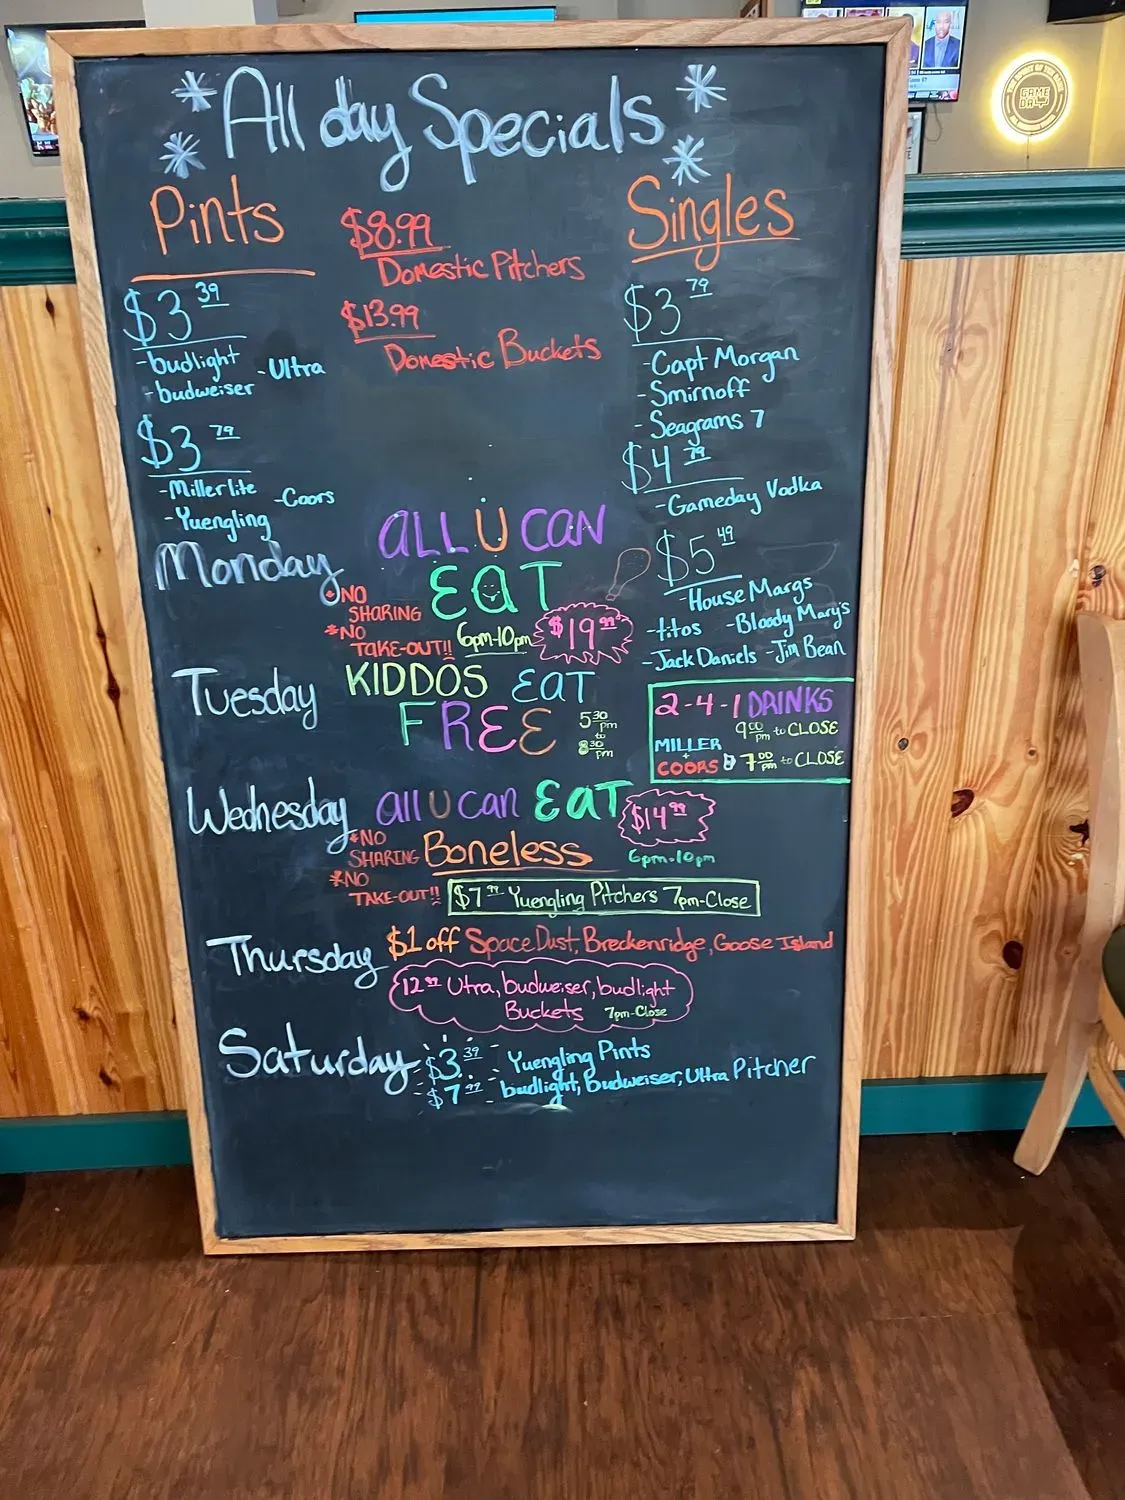 All day Specials
Pints
$3 39
-budlight
-budweiser
-Ultra
$3 79
-Miller lite
-Yuengling
-Coors
$8.99
Domestic Pitchers
$13.99
Domestic Buckets
Singles
$3 79
-Capt Morgan
-Smirnoff
-Seagrams 7
$4 79
-Gameday Vodka
$5 49
-House Margs
-titos -Bloody Mary's
-Jack Daniels -Jim Bean
Monday
ALL U CAN
EAT
*NO
SHARING
*NO
TAKE-OUT!!
6pm-10pm
$19.99
Tuesday
KIDDOS EAT
FREE
5 30 pm
to
8 30 pm
2-4-1 DRINKS
9 00 pm to CLOSE
MILLER
+
COORS
7 00 pm to CLOSE
Wednesday
all u can EAT
$14 99
*NO
SHARING
*NO
TAKE-OUT!!
Boneless
6pm-10pm
$7 99 Yuengling Pitchers 7pm-Close
Thursday
$1 off Space Dust, Breckenridge, Goose Island
12 99 Utra, budweiser, budlight
Buckets 7pm-Close
Saturday
$3 39 Yuengling Pints
$7 99 budlight, budweiser, Ultra Pitcher
GAME
DAY